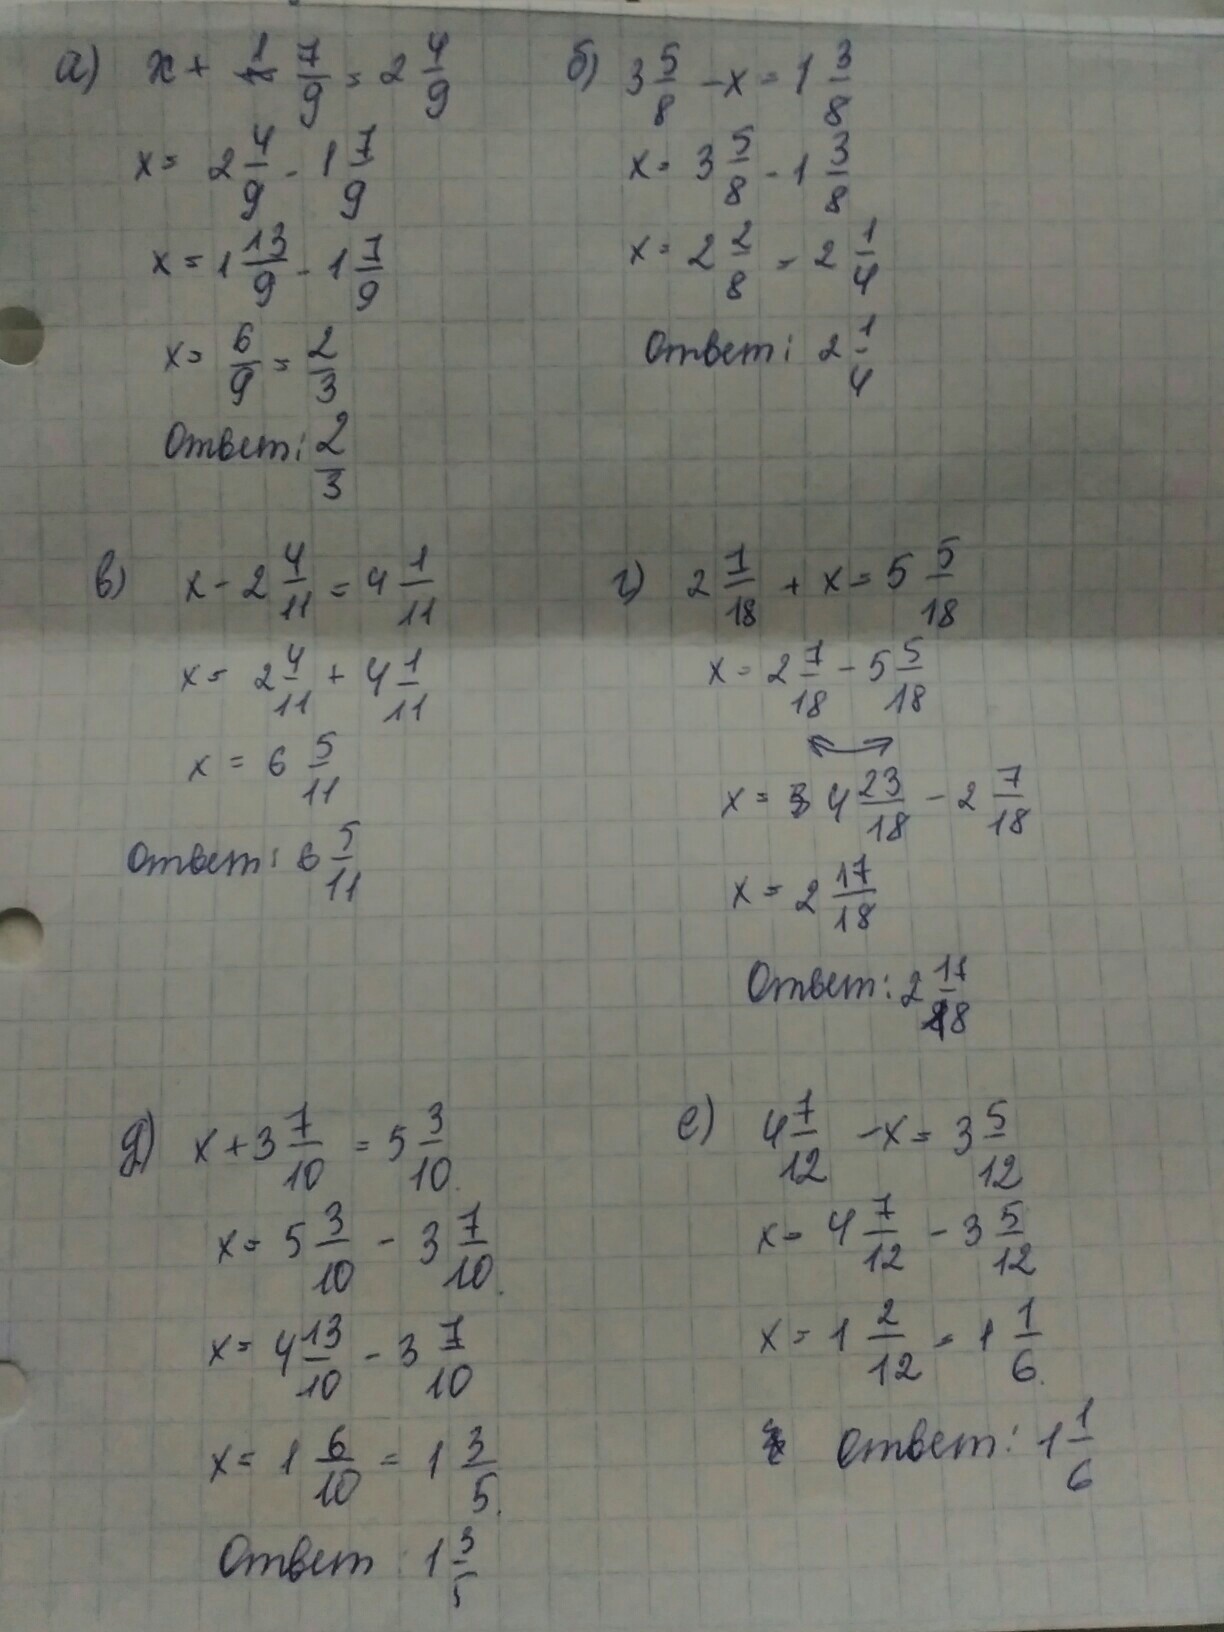 а) x + 1 7/9 = 2 4/9
x = 2 4/9 - 1 7/9
x = 1 13/9 - 1 7/9
x = 6/9 = 2/3
Ответ: 2/3
б) 3 5/8 - x = 1 3/8
x = 3 5/8 - 1 3/8
x = 2 2/8 = 2 1/4
Ответ: 2 1/4
в) x - 2 4/11 = 4 1/11
x = 2 4/11 + 4 1/11
x = 6 5/11
Ответ: 6 5/11
г) 2 7/18 + x = 5 5/18
x = 2 7/18 - 5 5/18
x = 4 23/18 - 2 7/18
x = 2 17/18
Ответ: 2 17/18
д) x + 3 7/10 = 5 3/10.
x = 5 3/10 - 3 7/10.
x = 4 13/10 - 3 7/10
x = 1 6/10 = 1 3/5.
Ответ : 1 3/5
е) 4 7/12 - x = 3 5/12
x = 4 7/12 - 3 5/12
x = 1 2/12 = 1 1/6.
Ответ: 1 1/6